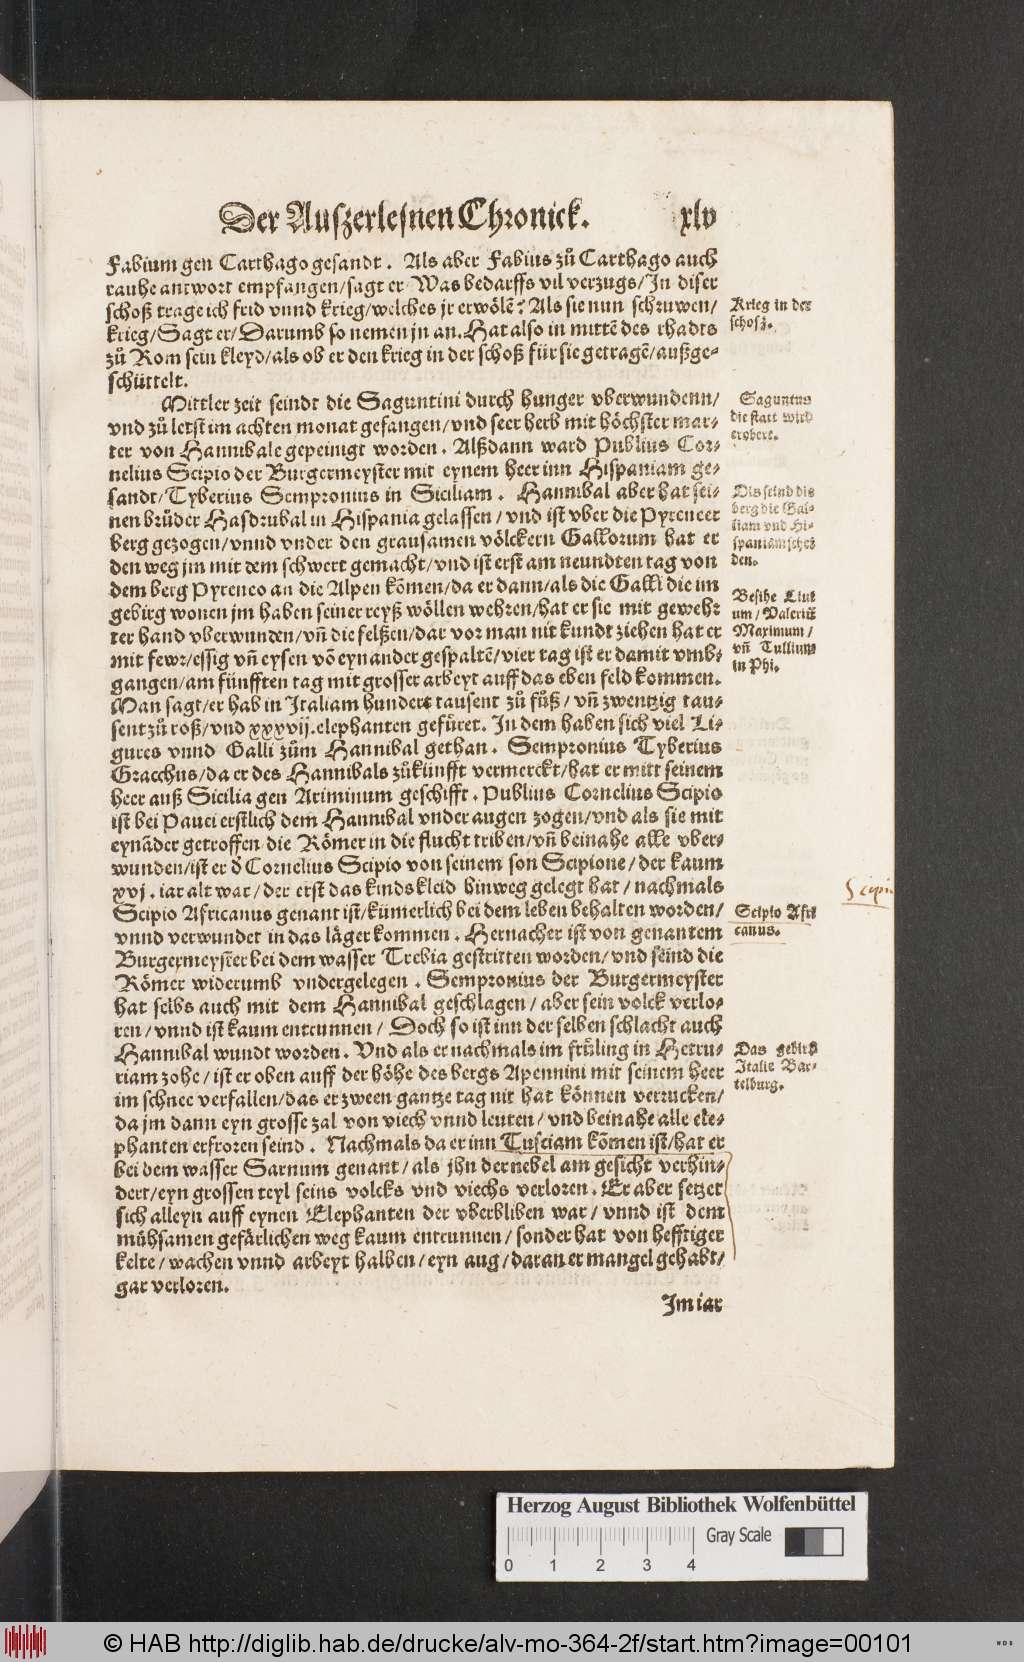 Der Auſzerleſnen Chronick. xlv
Fabium gen Carthago geſandt. Als aber Fabius zů Carthago auch
rauhe antwort empfangen/ſagt er Was bedarffs vil verzugs/In diſer
ſchoß trage ich frid vnnd krieg/welches jr erwölẽ? Als ſie nun ſchruwen/
krieg/Sagt er/Darumb ſo nemen jn an. Hat alſo in mittẽ des rhadts
zů Rom ſein kleyd/als ob er den krieg in der ſchoß für ſie getragẽ/außge⸗
ſchüttelt.
Krieg in der
ſchoſz.
Mittler zeit ſeindt die Saguntini durch hunger vberwundenn/
vnd zů letſt im achten monat gefangen/vnd ſeer herb mit höchſter mar⸗
ter von Hannibale gepeinigt worden. Alßdann ward Publius Cor⸗
nelius Scipio der Burgermeyſter mit eynem heer inn Hiſpaniam ge⸗
ſandt/Tyberius Sempronius in Siciliam. Hannibal aber hat ſei⸗
nen brůder Haſdrubal in Hiſpania gelaſſen/vnd iſt vber die Pyreneer
berg gezogen/vnnd vnder den grauſamen völckern Gallorum hat er
den weg jm mit dem ſchwert gemacht/vnd iſt erſt am neundten tag von
dem berg Pyreneo an die Alpen kõmen/da er dann/als die Galli die im
gebirg wonen jm haben ſeiner reyß wöllen wehren/hat er ſie mit gewehr
ter hand vberwunden/vñ die felßen/dar vor man nit kundt ziehen hat er
mit fewr/eſſig vñ eyſen võ eynander geſpaltẽ/vier tag iſt er damit vmb⸗
gangen/am fünfften tag mit groſſer arbeyt auff das eben feld kommen.
Man ſagt/er hab in Italiam hundert tauſent zů fůß/vñ zwentzig tau⸗
ſent zů roß/vnd xxxvij. elephanten gefüret. In dem haben ſich viel Li⸗
gures vnnd Galli zům Hannibal gethan. Sempronius Tyberius
Gracchus/da er des Hannibals zůkünfft vermerckt/hat er mitt ſeinem
heer auß Sicilia gen Ariminum geſchifft. Publius Cornelius Scipio
iſt bei Pauei erſtlich dem Hannibal vnder augen zogen/vnd als ſie mit
eynãder getroffen die Römer in die flucht triben/vñ beinahe alle vber⸗
wunden/iſt er d̕ Cornelius Scipio von ſeinem ſon Scipione/der kaum
xvj. iar alt war/der erſt das kindskleid hinweg gelegt hat/nachmals
Scipio Africanus genant iſt/kümerlich bei dem leben behalten worden/
vnnd verwundet in das läger kommen. Hernacher iſt von genantem
Burgermeyſter bei dem waſſer Trebia geſtritten worden/vnd ſeind die
Römer widerumb vndergelegen. Sempronius der Burgermeyſter
hat ſelbs auch mit dem Hannibal geſchlagen/aber ſein volck verlo⸗
ren/vnnd iſt kaum entrunnen/Doch ſo iſt inn der ſelben ſchlacht auch
Hannibal wundt worden. Vnd als er nachmals im früling in Hetru⸗
riam zohe/iſt er oben auff der höhe des bergs Apennini mit ſeinem heer
im ſchnee verfallen/das er zween gantze tag nit hat können verrucken/
da jm dann eyn groſſe zal von viech vnnd leuten/vnd beinahe alle ele⸗
phanten erfroren ſeind. Nachmals da er inn Tuſciam kõmen iſt/hat er
bei dem waſſer Sarnum genant/als jhn der nebel am geſicht verhin⸗
dert/eyn groſſen teyl ſeins volcks vnd viechs verloren. Er aber ſetzet
ſich alleyn auff eynen Elephanten der vberbliben war/vnnd iſt dem
mühſamen gefärlichen weg kaum entrunnen/ſonder hat von hefftiger
kelte/wachen vnnd arbeyt halben/eyn aug/daran er mangel gehabt/
gar verloren.
Im iar
Saguntus
die ſtatt wird
erobert.
Dis ſeind die
berg die Gal⸗
liam vnd Hi⸗
ſpaniam ſchei
den.
Beſihe Liui
um/Valeriũ
Maximum/
vñ Tullium
in Phi.
Scipio Afri
canus.
Das gebirg
Italie Bar⸗
telburg.
Scipio
Herzog August Bibliothek Wolfenbüttel
Gray Scale
0 1 2 3 4
© HAB http://diglib.hab.de/drucke/alv-mo-364-2f/start.htm?image=00101